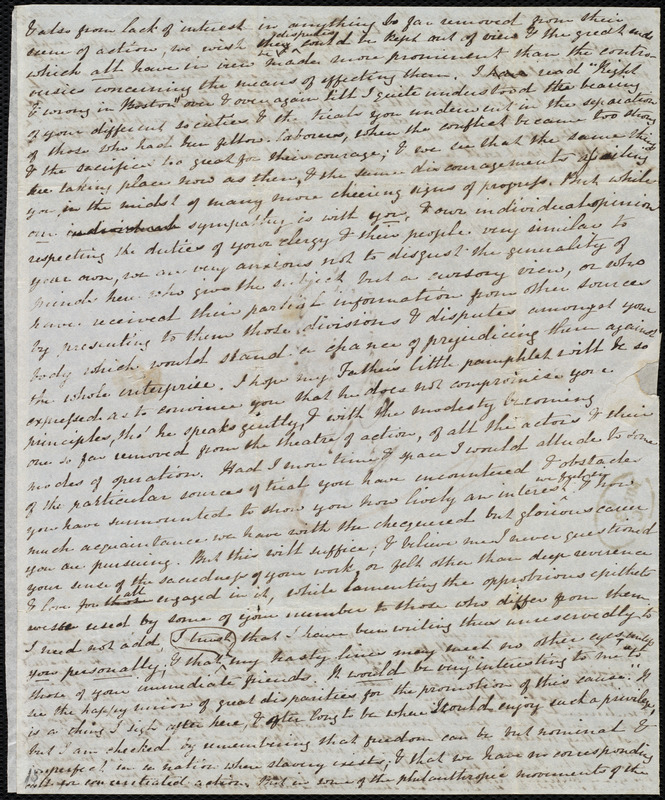 & also from lack of interest in anything so far removed from their
scene of action, we wish these disputes could be kept out of view & the great ends
which all have in view made more prominent than the contro-
versies concerning the means of effecting them. I have read "Right
& wrong in Boston" over & over again till I quite understood the bearing
of your different societies & the trials you underwent in the separation
of those who had been fellow-labourers, when the conflict became too strong
& the sacrifice too great for their courage; & we see that the same thing
are taking place now as then, & the same discouragements awaiting
you in the midst of many more cheering signs of progress. But while
our individual sympathy is with you, & our individual opinion
respecting the duties of your clergy & their people very similar to
your own, we are very anxious not to disgust the generality of
minds here who give the subject but a cursory view, or who
have received their partial information from other sources
by presenting to them those divisions & disputes amongst your
body which would stand a chance of prejudicing them against
the whole enterprise. I hope my Father's little pamphlet will be so
expressed as to convince you that he does not compromise your
principles, tho' he speaks gently, & with the modesty becoming
one so far removed from the theatre of action, of all the actors & their
modes of operation. Had I more time & space I would allude to some
of the particular sources of trial you have incountered & obstacles
you have surmounted to show you how lively an interest & how
much acquaintance we have with the checquered but glorious cause
you are pursuing. But this will suffice; & believe me I never questioned
your sense of the sacredness of your work, or felt other than deep reverence
& love for all engaged in it, while lamenting the opprobrious epithets
used by some of your number to those who differ from them
I need not add, I trust, that I have been writing thus unreservedly to
you personally; & that my hasty lines may meet no other eyes
those of your immediate friends. It would be very interesting to me to
see the happy union of great disparities for the promotion of this cause. It
is a thing I sigh after here, & often long to be where I could enjoy such a privilege,
but I am checked by remembering that freedom can be but nominal &
imperfect in a nation where slavery exists; & that we have no corresponding
for concentrated action. But in some of the philanthropic movements of the